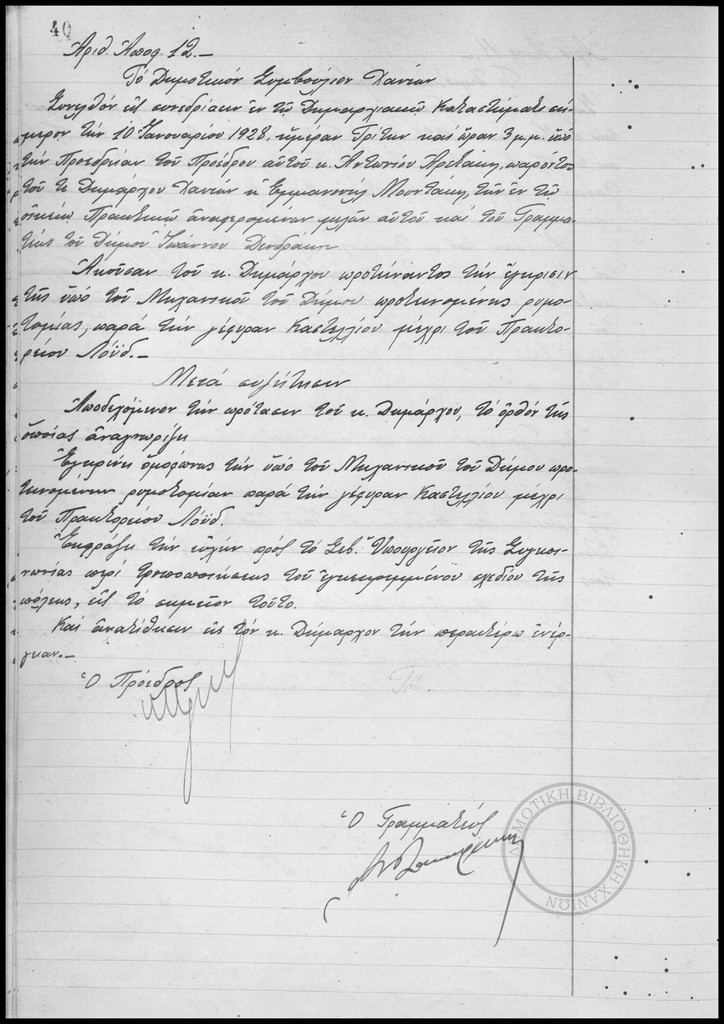 40
Ἀριθ. Ἀποφ. 12.-
Τὸ Δημοτικὸν Συμβούλιον Χανίων
Συνελθὸν εἰς συνεδρίασιν ἐν τῷ Δημαρχιακῷ Καταστήματι σή-
μερον τὴν 10 Ἰανουαρίου 1928, ἡμέραν Τρίτην καὶ ὥραν 3 μ.μ. ὑπὸ
τὴν Προεδρείαν τοῦ Προέδρου αὐτοῦ κ. Ἀντωνίου παρόντος
τοῦ τε Δημάρχου Χανίων κ. Ἐμμανουὴλ Μουντάκη, τῶν ἐν τῷ
οἰκείῳ Πρακτικῷ ἀναφερομένων μελῶν αὐτοῦ καὶ τοῦ Γραμμα-
τέως τοῦ Δήμου Ἰωάννου Δενδράκη
Ἀκοῦσαν τοῦ κ. Δημάρχου προτείναντος τὴν ἔγκρισιν
τῆς ὑπὸ τοῦ Μηχανικοῦ τοῦ Δήμου προτεινομένης ρυμο-
τομίας, παρὰ τὴν γέφυραν Καστελλίου μέχρι τοῦ Πρακτο-
ρείου Λόϋδ.-
Μετὰ συζήτησιν
Ἀποδεχόμενον τὴν πρότασιν τοῦ κ. Δημάρχου, τὸ ὀρθὸν τῆς
ὁποίας ἀναγνωρίζει
Ἐγκρίνει ὁμοφώνως τὴν ὑπὸ τοῦ Μηχανικοῦ τοῦ Δήμου προ-
τεινομένην ρυμοτομίαν παρὰ τὴν γέφυραν Καστελλίου μέχρι
τοῦ Πρακτορείου Λόϋδ.
Ἐκφράζει τὴν εὐχὴν πρὸς τὸ Σεβ. Ὑπουργεῖον τῆς Συγκοι-
νωνίας περὶ τροποποιήσεως τοῦ ἐγκεκριμμένου σχεδίου τῆς
πόλεως, εἰς τὸ σημεῖον τοῦτο.
Καὶ ἀνατίθησιν εἰς τὸν κ. Δήμαρχον τὴν περαιτέρω ἐνέρ-
γειαν.-
Ὁ Πρόεδρος
Ὁ Γραμματεύς
ΔΗΜΟΤΙΚΗ ΒΙΒΛΙΟΘΗΚΗ ΧΑΝΙΩΝ